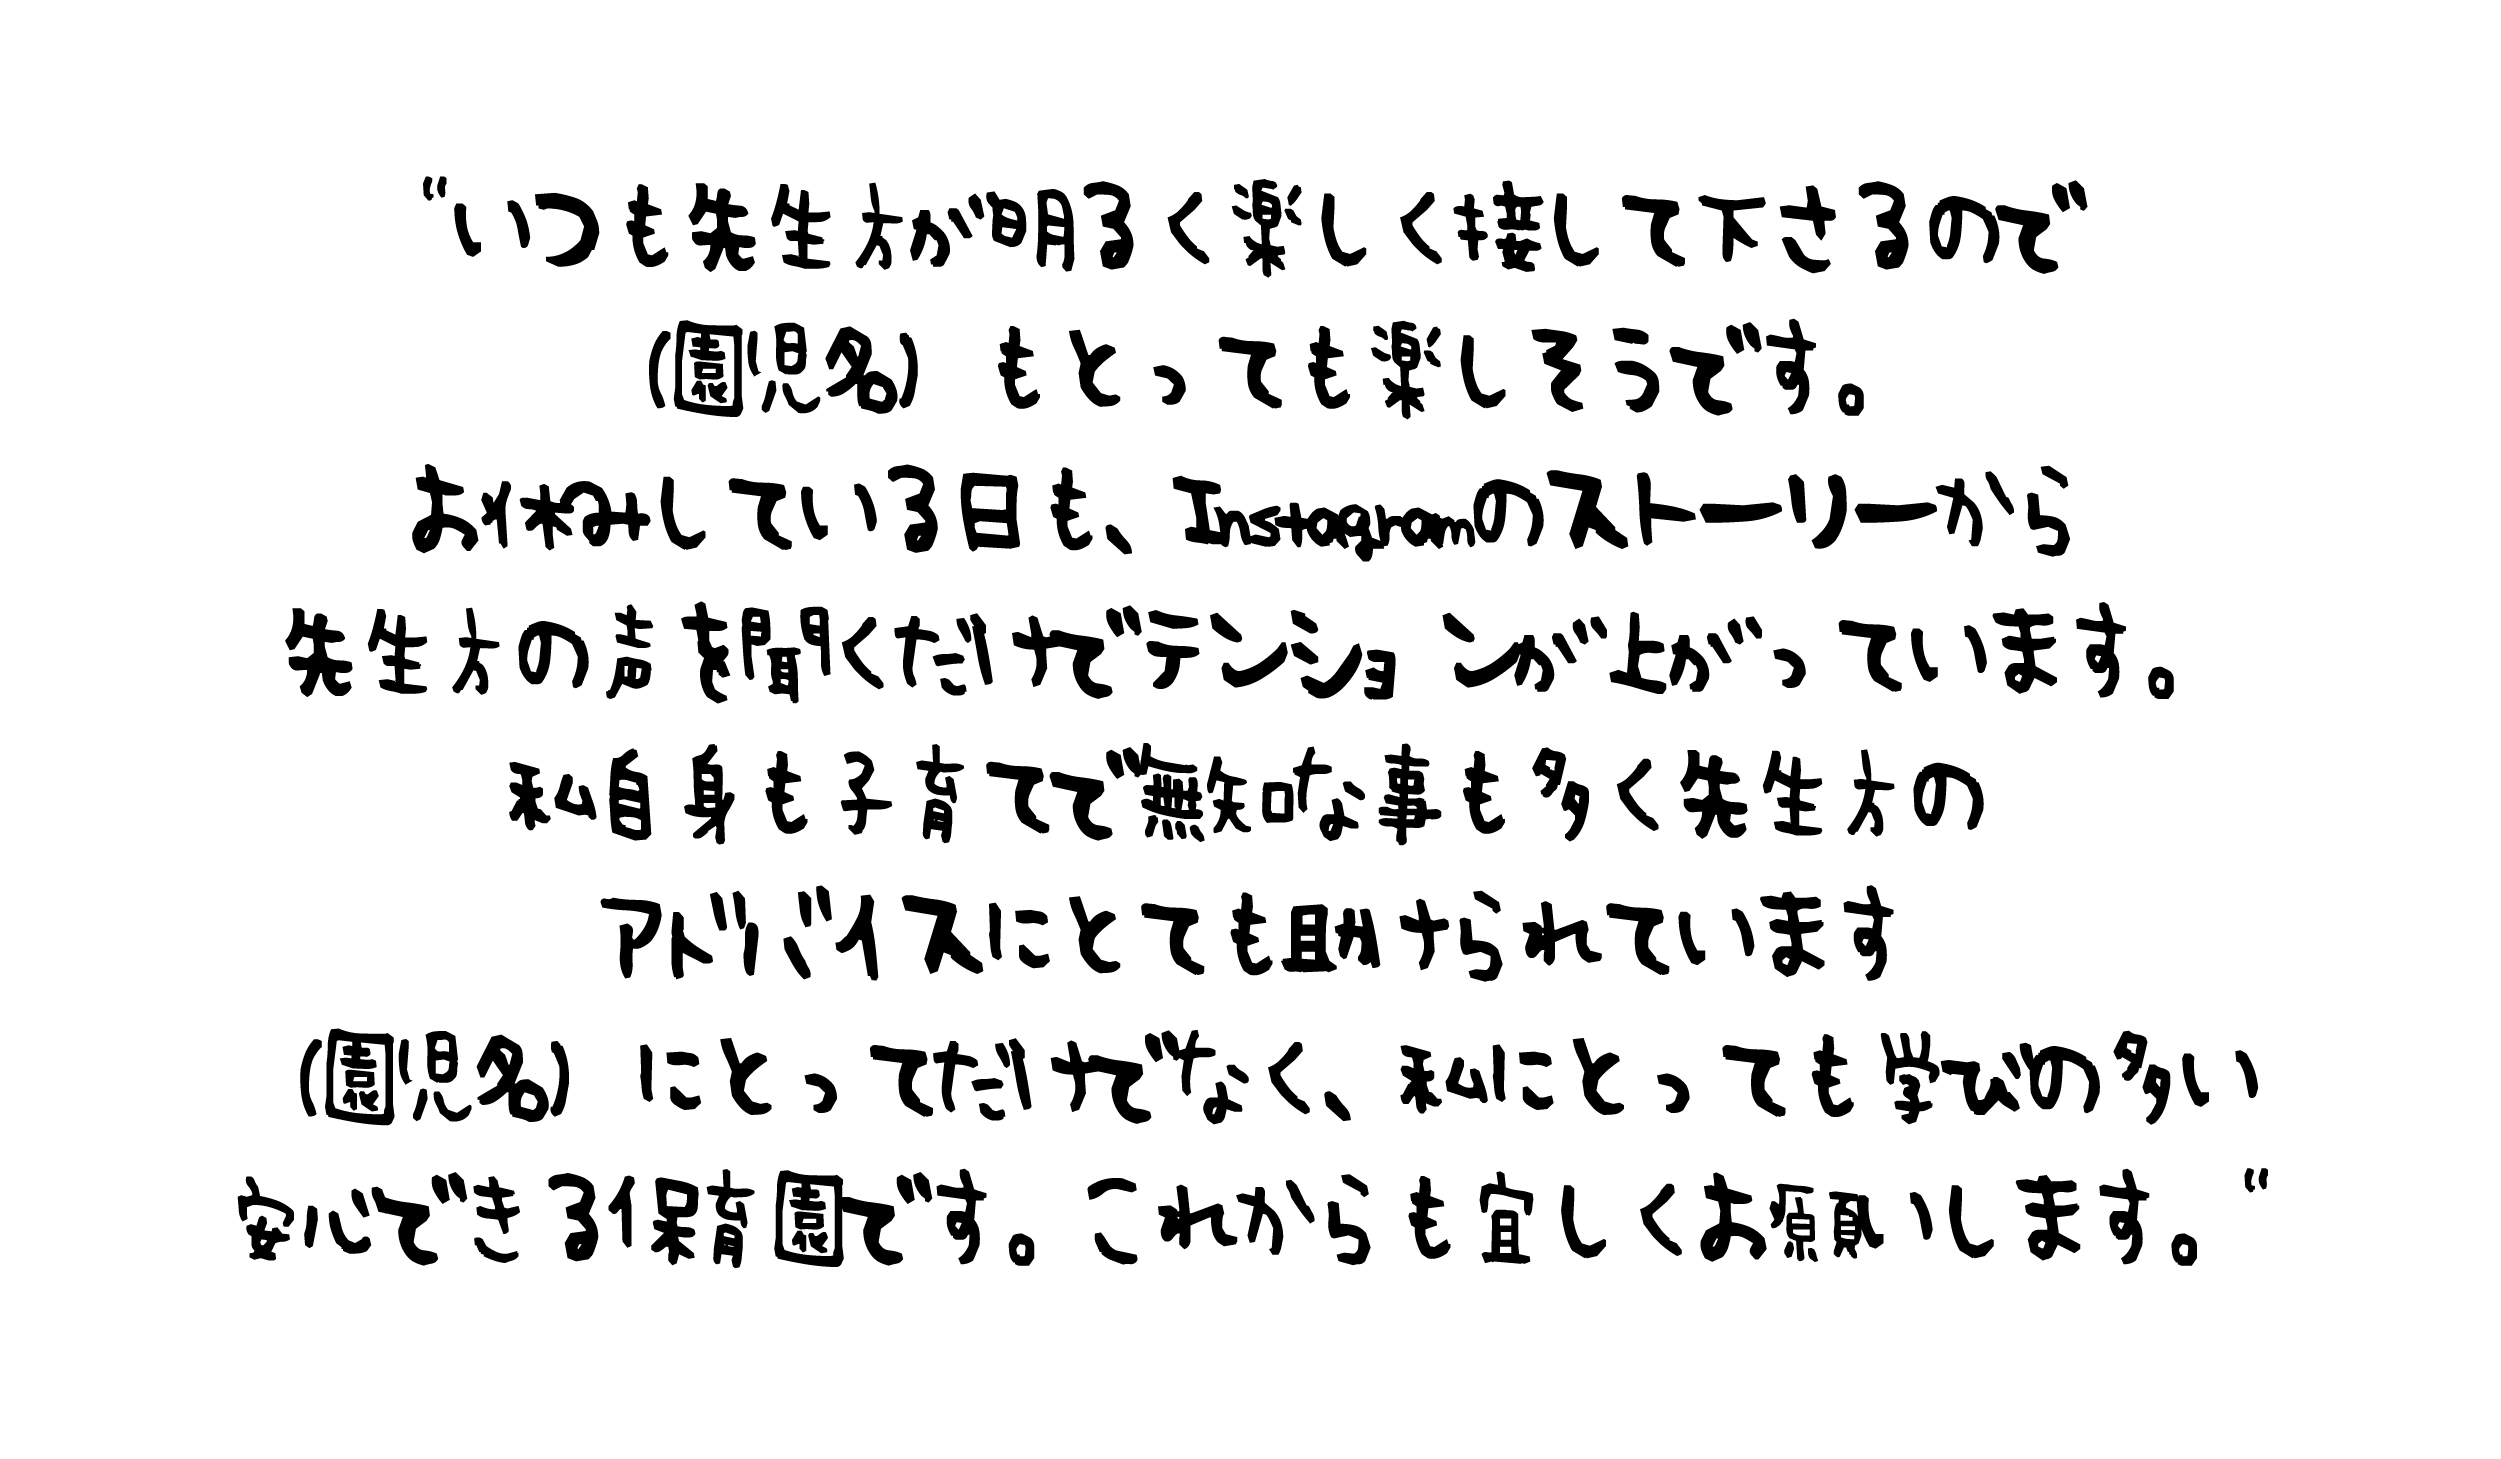 “いつも先生方が明るく楽しく接して下さるので
(園児名) もとっても楽しそうです。
お休みしている日も、Instagramのストーリーから
先生方の声を聞くだけでテンションが上がっています。
私自身も子育てで無知な事も多く先生方の
アドバイスにとても助けられています
(園児名) にとってだけでなく、私にとっても学びの多い
ありがたい保育園です。これからも宜しくお願いします。“